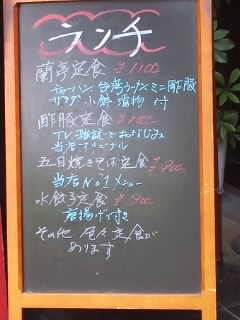 ランチ
蘭亭定食 ¥1100
チャーハン 台湾ラーメン ミニ酢豚
サラダ 小鉢 漬物 付
酢豚定食
TV 雑誌でおなじみ
当店オリジナル
五目焼きそば定食 ¥900
当店No1メニュー
水餃子定食 ¥900
唐揚げ付き
その他 色々定食が
あります